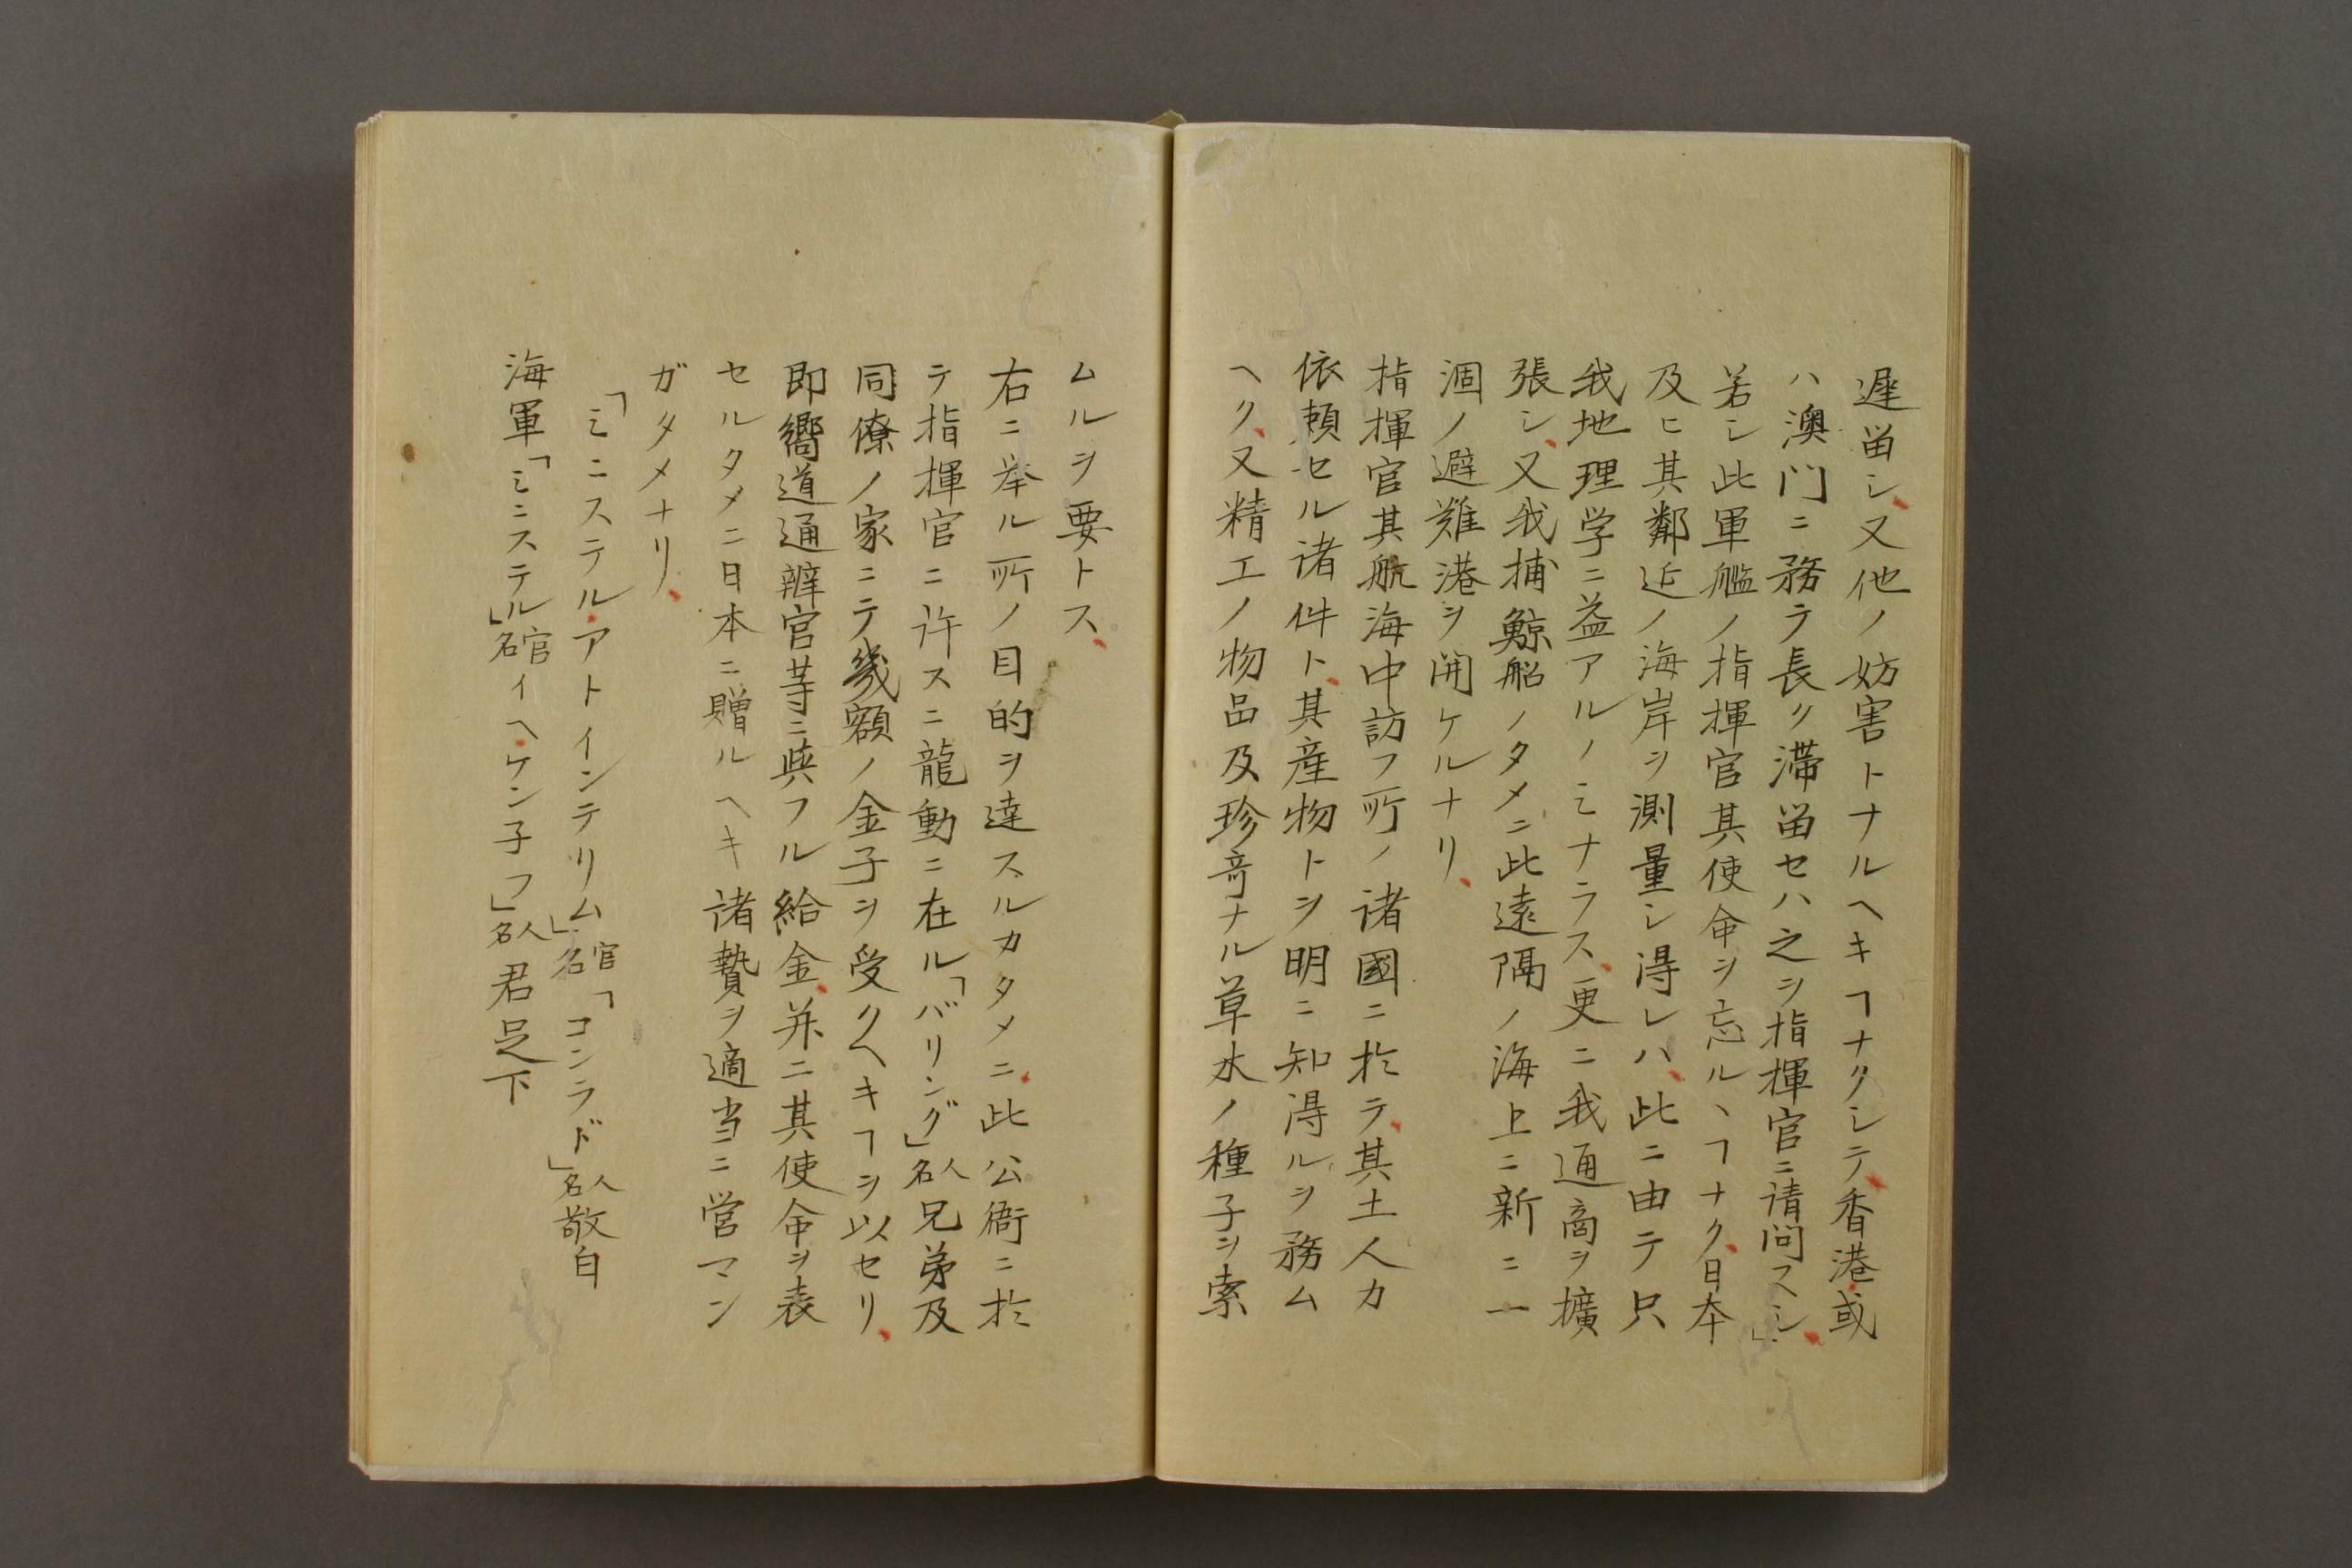 遅留シ、又他ノ妨害トナルヘキヿナクシテ、香港或
ハ澳門ニ務テ長ク滞留セハ之ヲ指揮官ニ请問スヘシ、
若シ此軍艦ノ指揮官其使命ヲ忘ル、ヿナク、日本
及ヒ其鄰近ノ海岸ヲ測量シ得レハ、此ニ由テ只
我地理学ニ益アルノミナラス、更ニ我通商ヲ擴
張シ、又我捕鯨船ノタメニ此遠隔ノ海上ニ新ニ一
涸ノ避難港ヲ開ケルナリ、
指揮官其航海中訪フ所ノ諸國ニ於テ、其土人カ
依頼セル诸件ト、其産物トヲ明ニ知得ルヲ務ム
ヘク、又精工ノ物品及珍奇ナル草木ノ種子ヲ索
ムルヲ要トス、
右ニ举ル所ノ目的ヲ達スルカタメニ、此公衙ニ於
テ指揮官ニ许スニ龍動ニ在ル「バリング」人名兄弟及
同僚ノ家ニテ幾額ノ金子ヲ受クヘキヿヲ以セリ、
即嚮道通辨官等ニ與フル給金、并ニ其使命ヲ表
セルタメニ日本ニ贈ルヘキ諸贄ヲ適当ニ営マン
ガタメナリ、
「ミニステル、アトインテリム」官名「コンラド」人名敬白
海軍「ミニステル」官名イヘ、ケン子フ」人名君足下